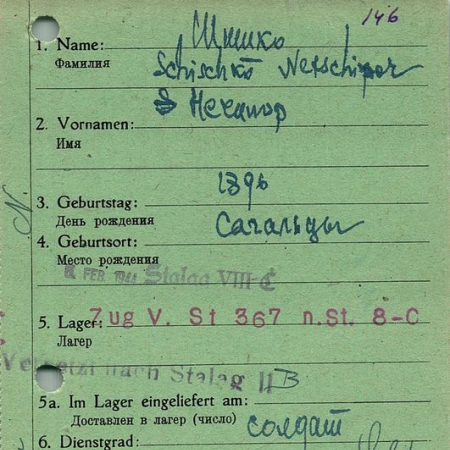 146
Шишко
1. Name:
Фамилия
Schischko Netschipor
Нечапор
2. Vornamen:
Имя
1896
3. Geburtstag:
День рождения
Сагальцы
4. Geburtsort:
Место рождения
FEB. 1944 Stalag VIII-C
5. Lager: Zug V. St 367 n.St. 8-C
Лагер
Versetzt nach Stalag II B
5a. Im Lager eingeliefert am:
Доставлен в лагер (число)
солдат
6. Dienstgrad: